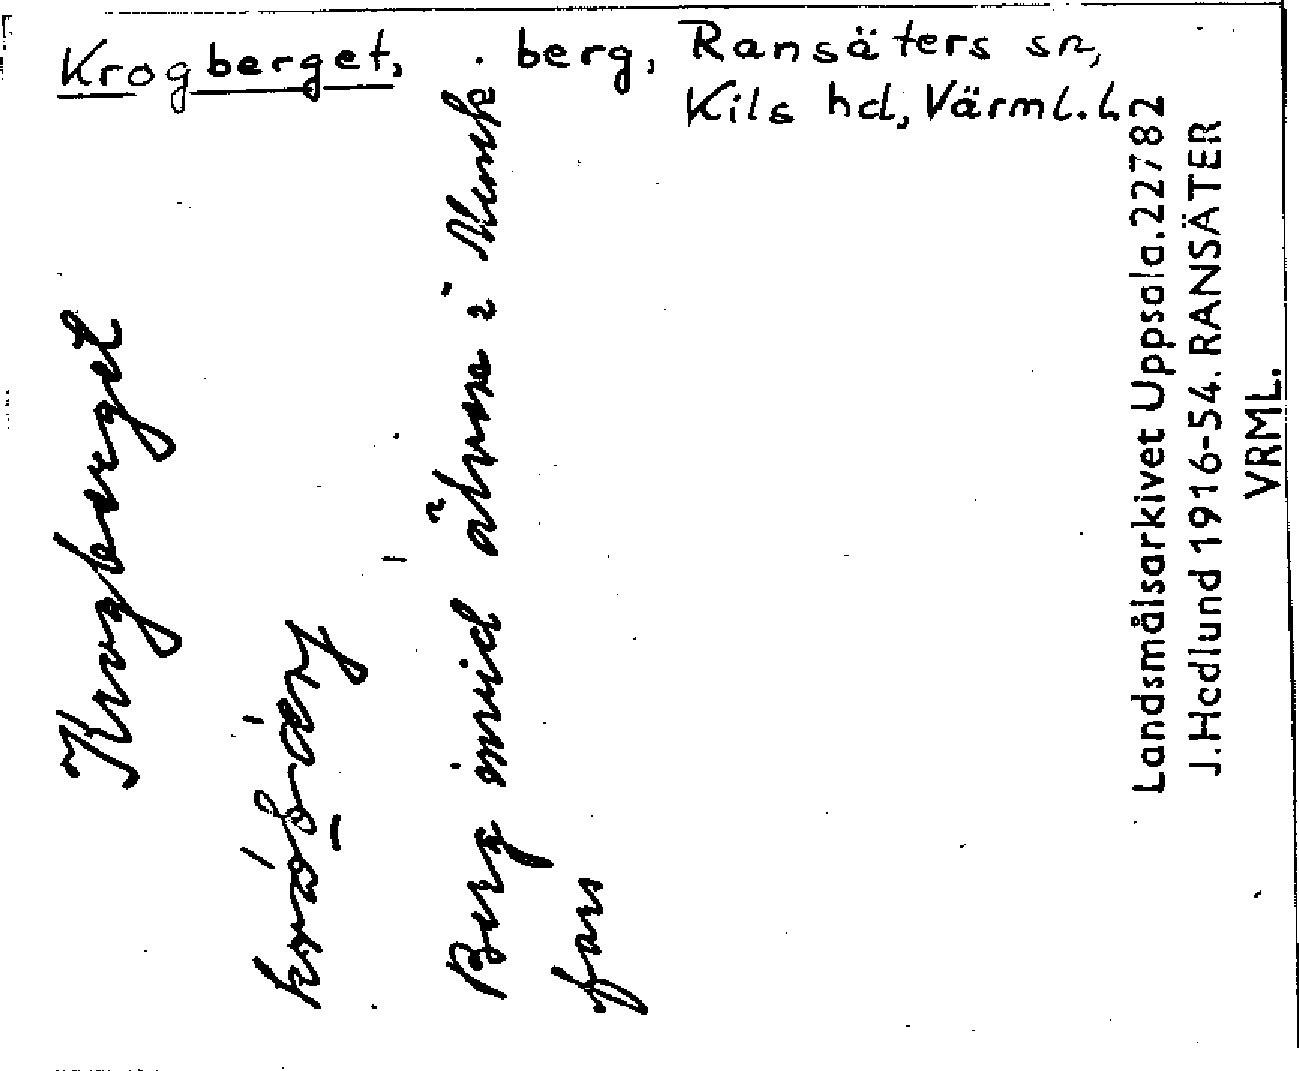 Krogberget, berg, Ransäters sn,
Kils hd, Värml. l.
Krogberget
Berg invid älven i Munk
fors
Landsmålsarkivet Uppsala. 22782
J. Hedlund 1916-54. RANSÄTER
VRML.